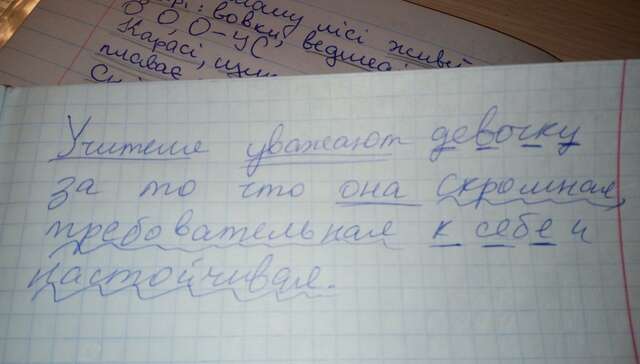 лісі живу
: вовки, ведмеді
О, О – у(
Карасі, щук
плаває
Учителя уважают девочку
за то что она скромная,
требовательная к себе и
настойчивая.